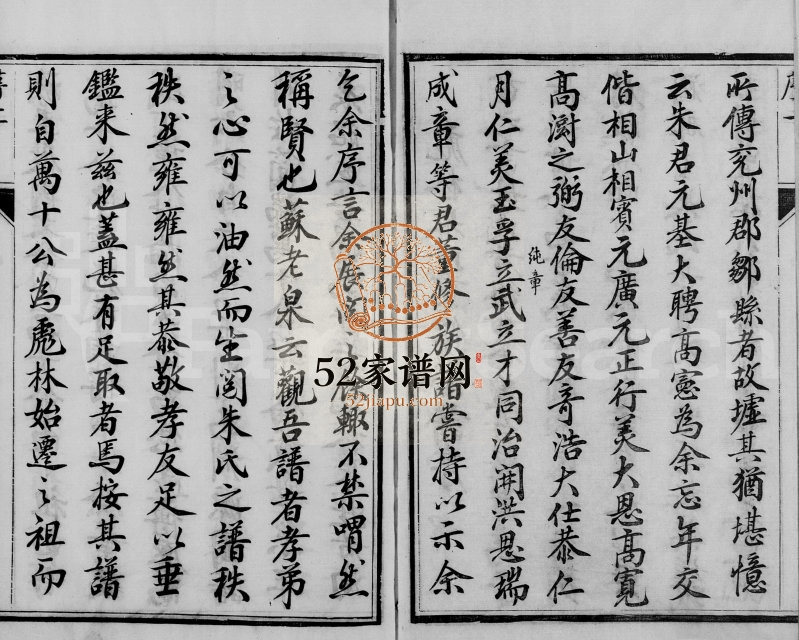 序一
所傳兖州郡鄒縣者故墟其猶堪憶
云朱君元基大聘高憲為余忘年交
偕相山相賓元廣元正行美大恩高寬
高澍之弼友倫友善友竒浩大仕恭仁
月仁美玉孚立武立才同治開洪恩瑞
純章
成章等君 修族譜嘗持以示余
乞余序言余展閱 輙不禁喟然
稱賢也蘇老泉云觀吾譜者孝弟
之心可以油然而生閲朱氏之譜秩
秩然雍雍然其恭敬孝友足以垂
鑑来兹也蓋甚有足取者焉按其譜
則自萬十公為虎林始遷之祖而
52家谱网
52jiapu.com